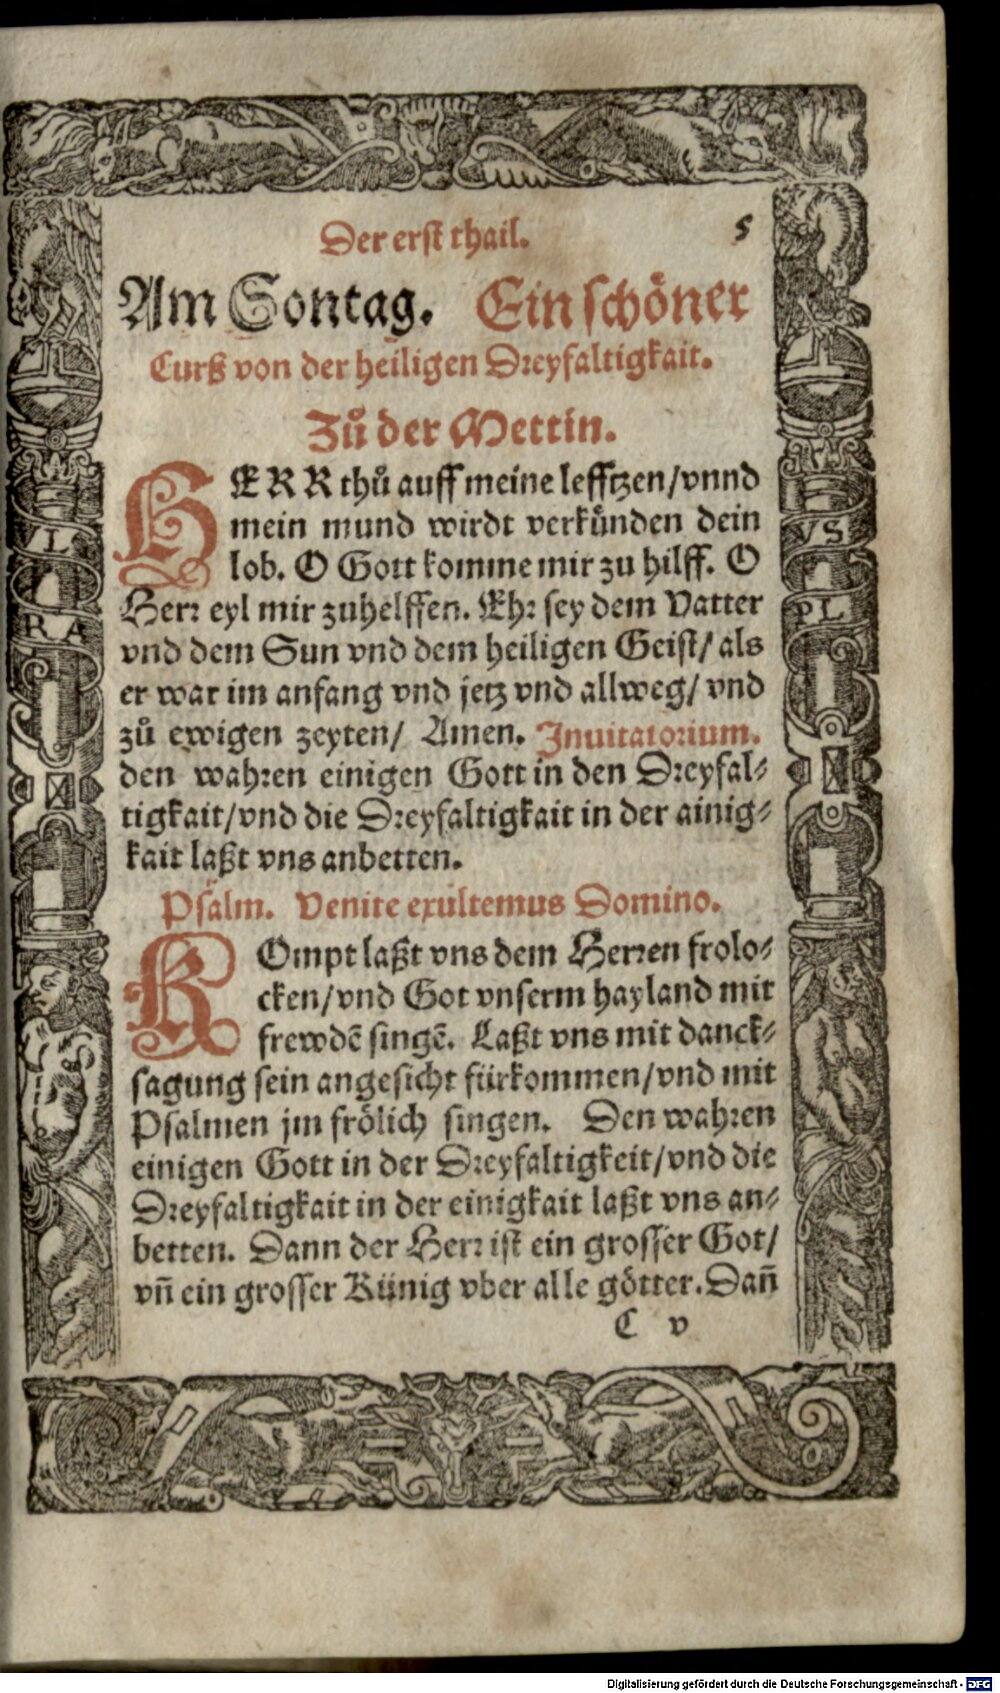 Der erst thail. 5
Am Sontag. Ein schöner
Curß von der heiligen Dreyfaltigkait.
Zů der Mettin.
HERR thů auff meine lefftzen/vnnd
mein mund wirdt verkünden dein
lob. O Gott komme mir zu hilff. O
Herr eyl mir zuhelffen. Ehr sey dem Vatter
vnd dem Sun vnd dem heiligen Geist/ als
er war im anfang vnd jetz vnd allweg/ vnd
zů ewigen zeyten/ Amen. Inuitatorium.
den wahren einigen Gott in den Dreyfal-
tigkait/vnd die Dreyfaltigkait in der ainig-
kait laßt vns anbetten.
Psalm. Venite exultemus Domino.
KOmpt laßt vns dem Herren frolo-
cken/vnd Got vnserm hayland mit
frewdē singē. Laßt vns mit danck-
sagung sein angesicht fürkommen/vnd mit
Psalmen jm frölich singen. Den wahren
einigen Gott in der Dreyfaltigkeit/vnd die
Dreyfaltigkait in der einigkait laßt vns an-
betten. Dann der Herr ist ein grosser Got/
vn̄ ein grosser Künig vber alle götter. Dan̄
C v
VL
RA
VS
PL
Digitalisierung gefördert durch die Deutsche Forschungsgemeinschaft - DFG